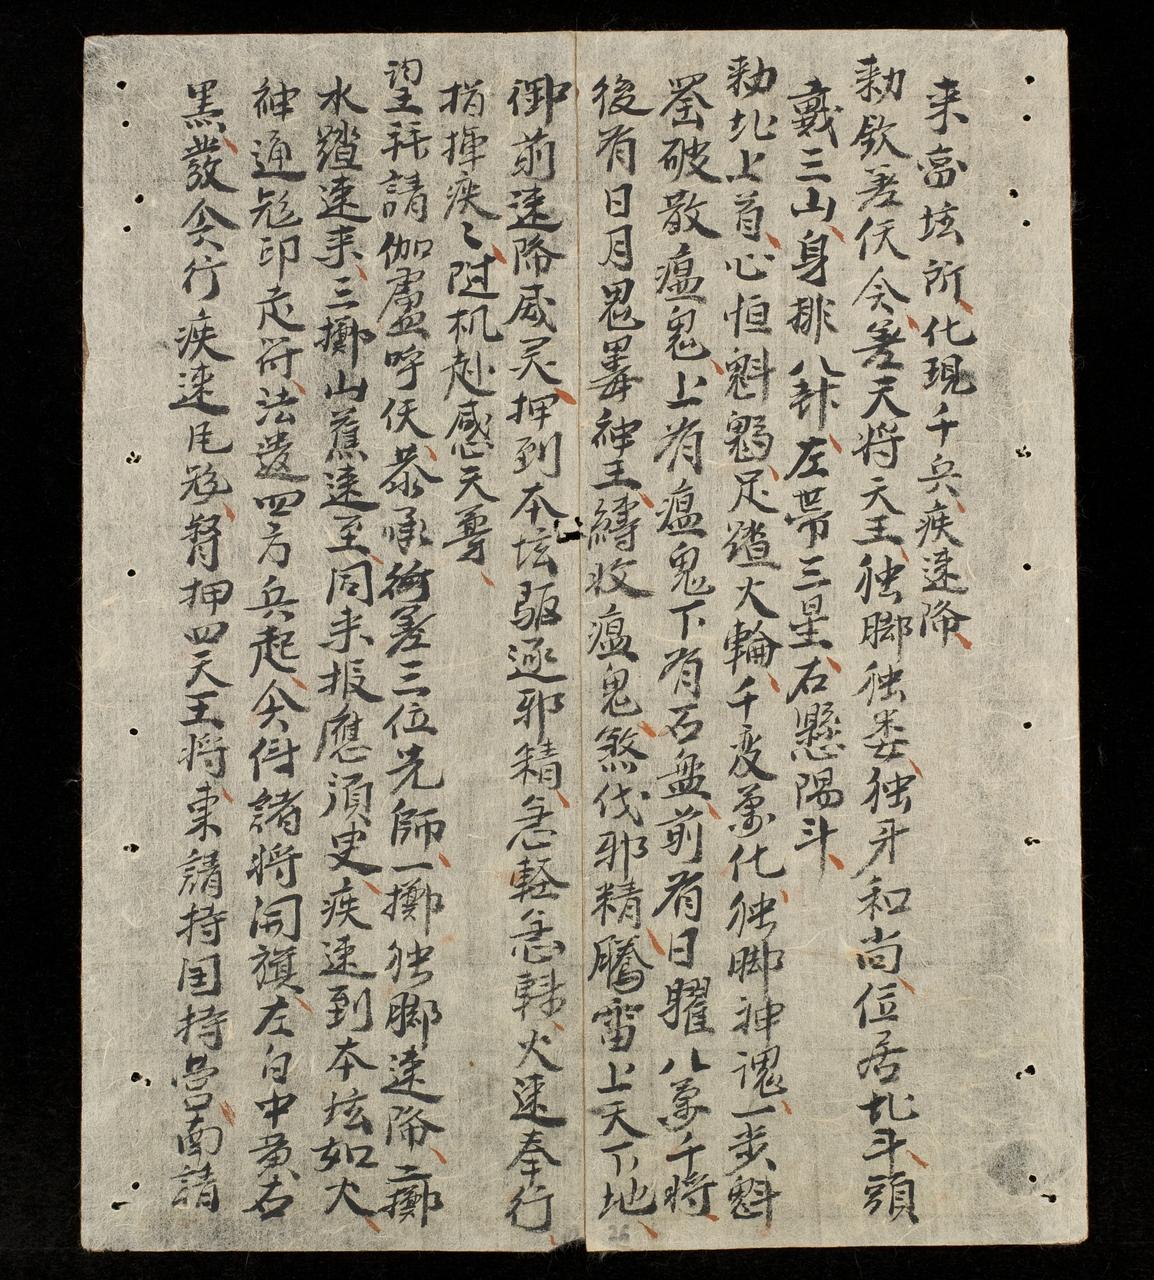 来當坛所化現千兵疾速降
勅欽差伏念差天将天王独脚独娄独牙和尚位居北斗頭
戴三山身排八卦左帶三星右懸陽斗
勅北上首心恒魁魁足踏火輪千变萬化独脚神魂一步魁
罡破散瘟鬼上有瘟鬼下有石盤前有日曜八萬千将
後有日月鬼毒神王縛收瘟鬼煞伐邪精騰雷上天下地
御前速降威灵押到本坛驅逐邪精急軽急軽火速奉行
指揮疾々随机赴感天尊
謹拜請伽盧呼伏恭承衙差三位兄師一擲独脚速降二擲
水踏速来三擲山蕉速至同来报應須史疾速到本坛如火
神通冠印走符法遣四方兵起仌付諸将開旗左白中黄右
黑發仌行疾速 督押四天王将東請持国持营南請
26